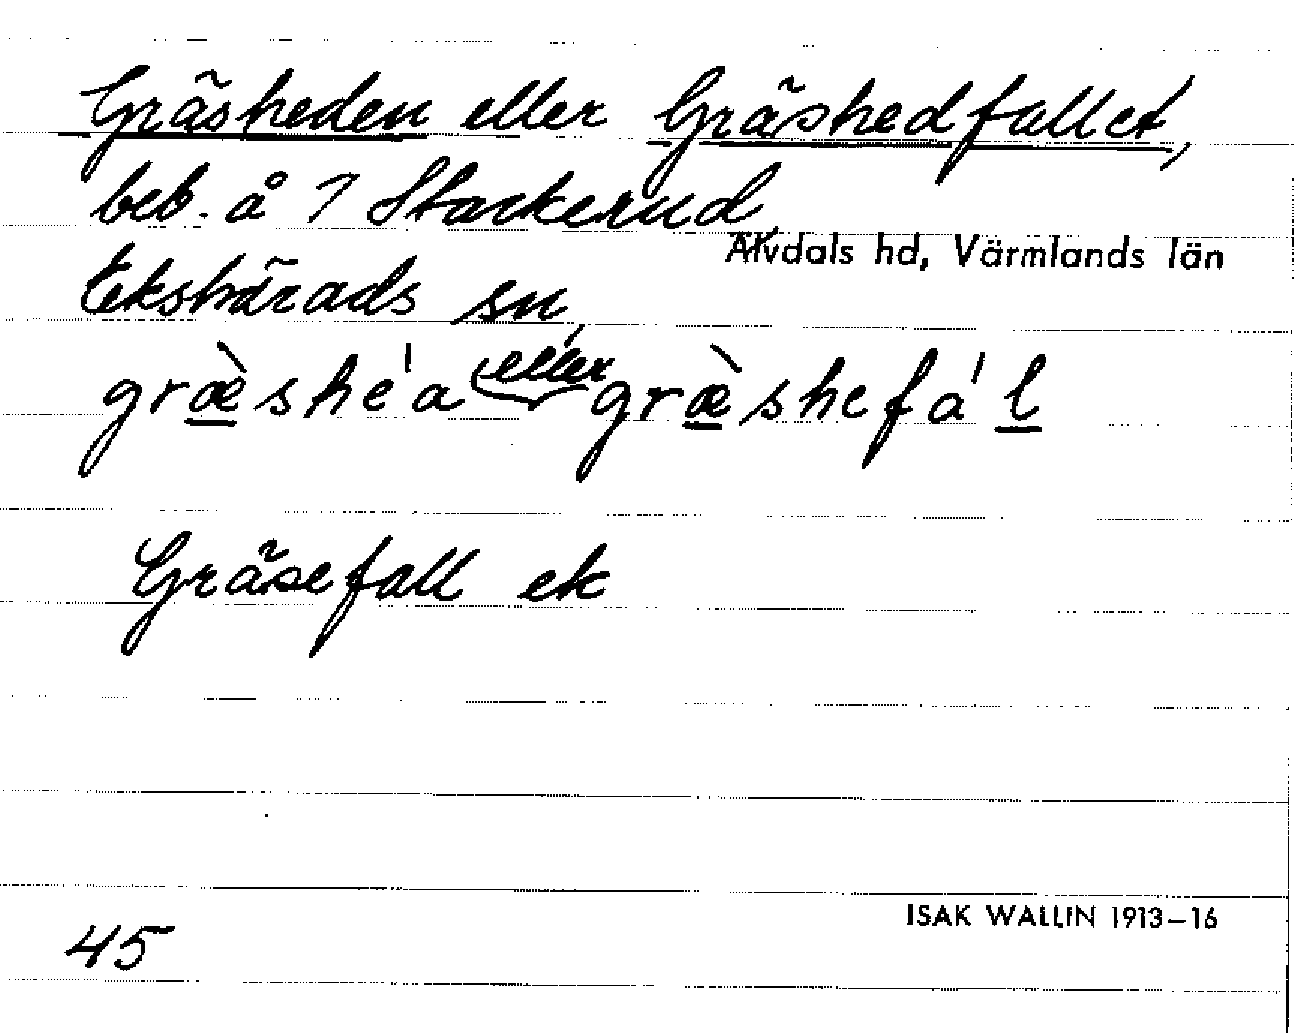 Gräsheden eller Gräshedfallet,
beb. å 7 Stackerud,
Älvdals hd, Värmlands län
Ekshärads sn
græ̀she'a eller græ̀shefa'l
Gräsefall ek
ISAK WALLIN 1913–16
45